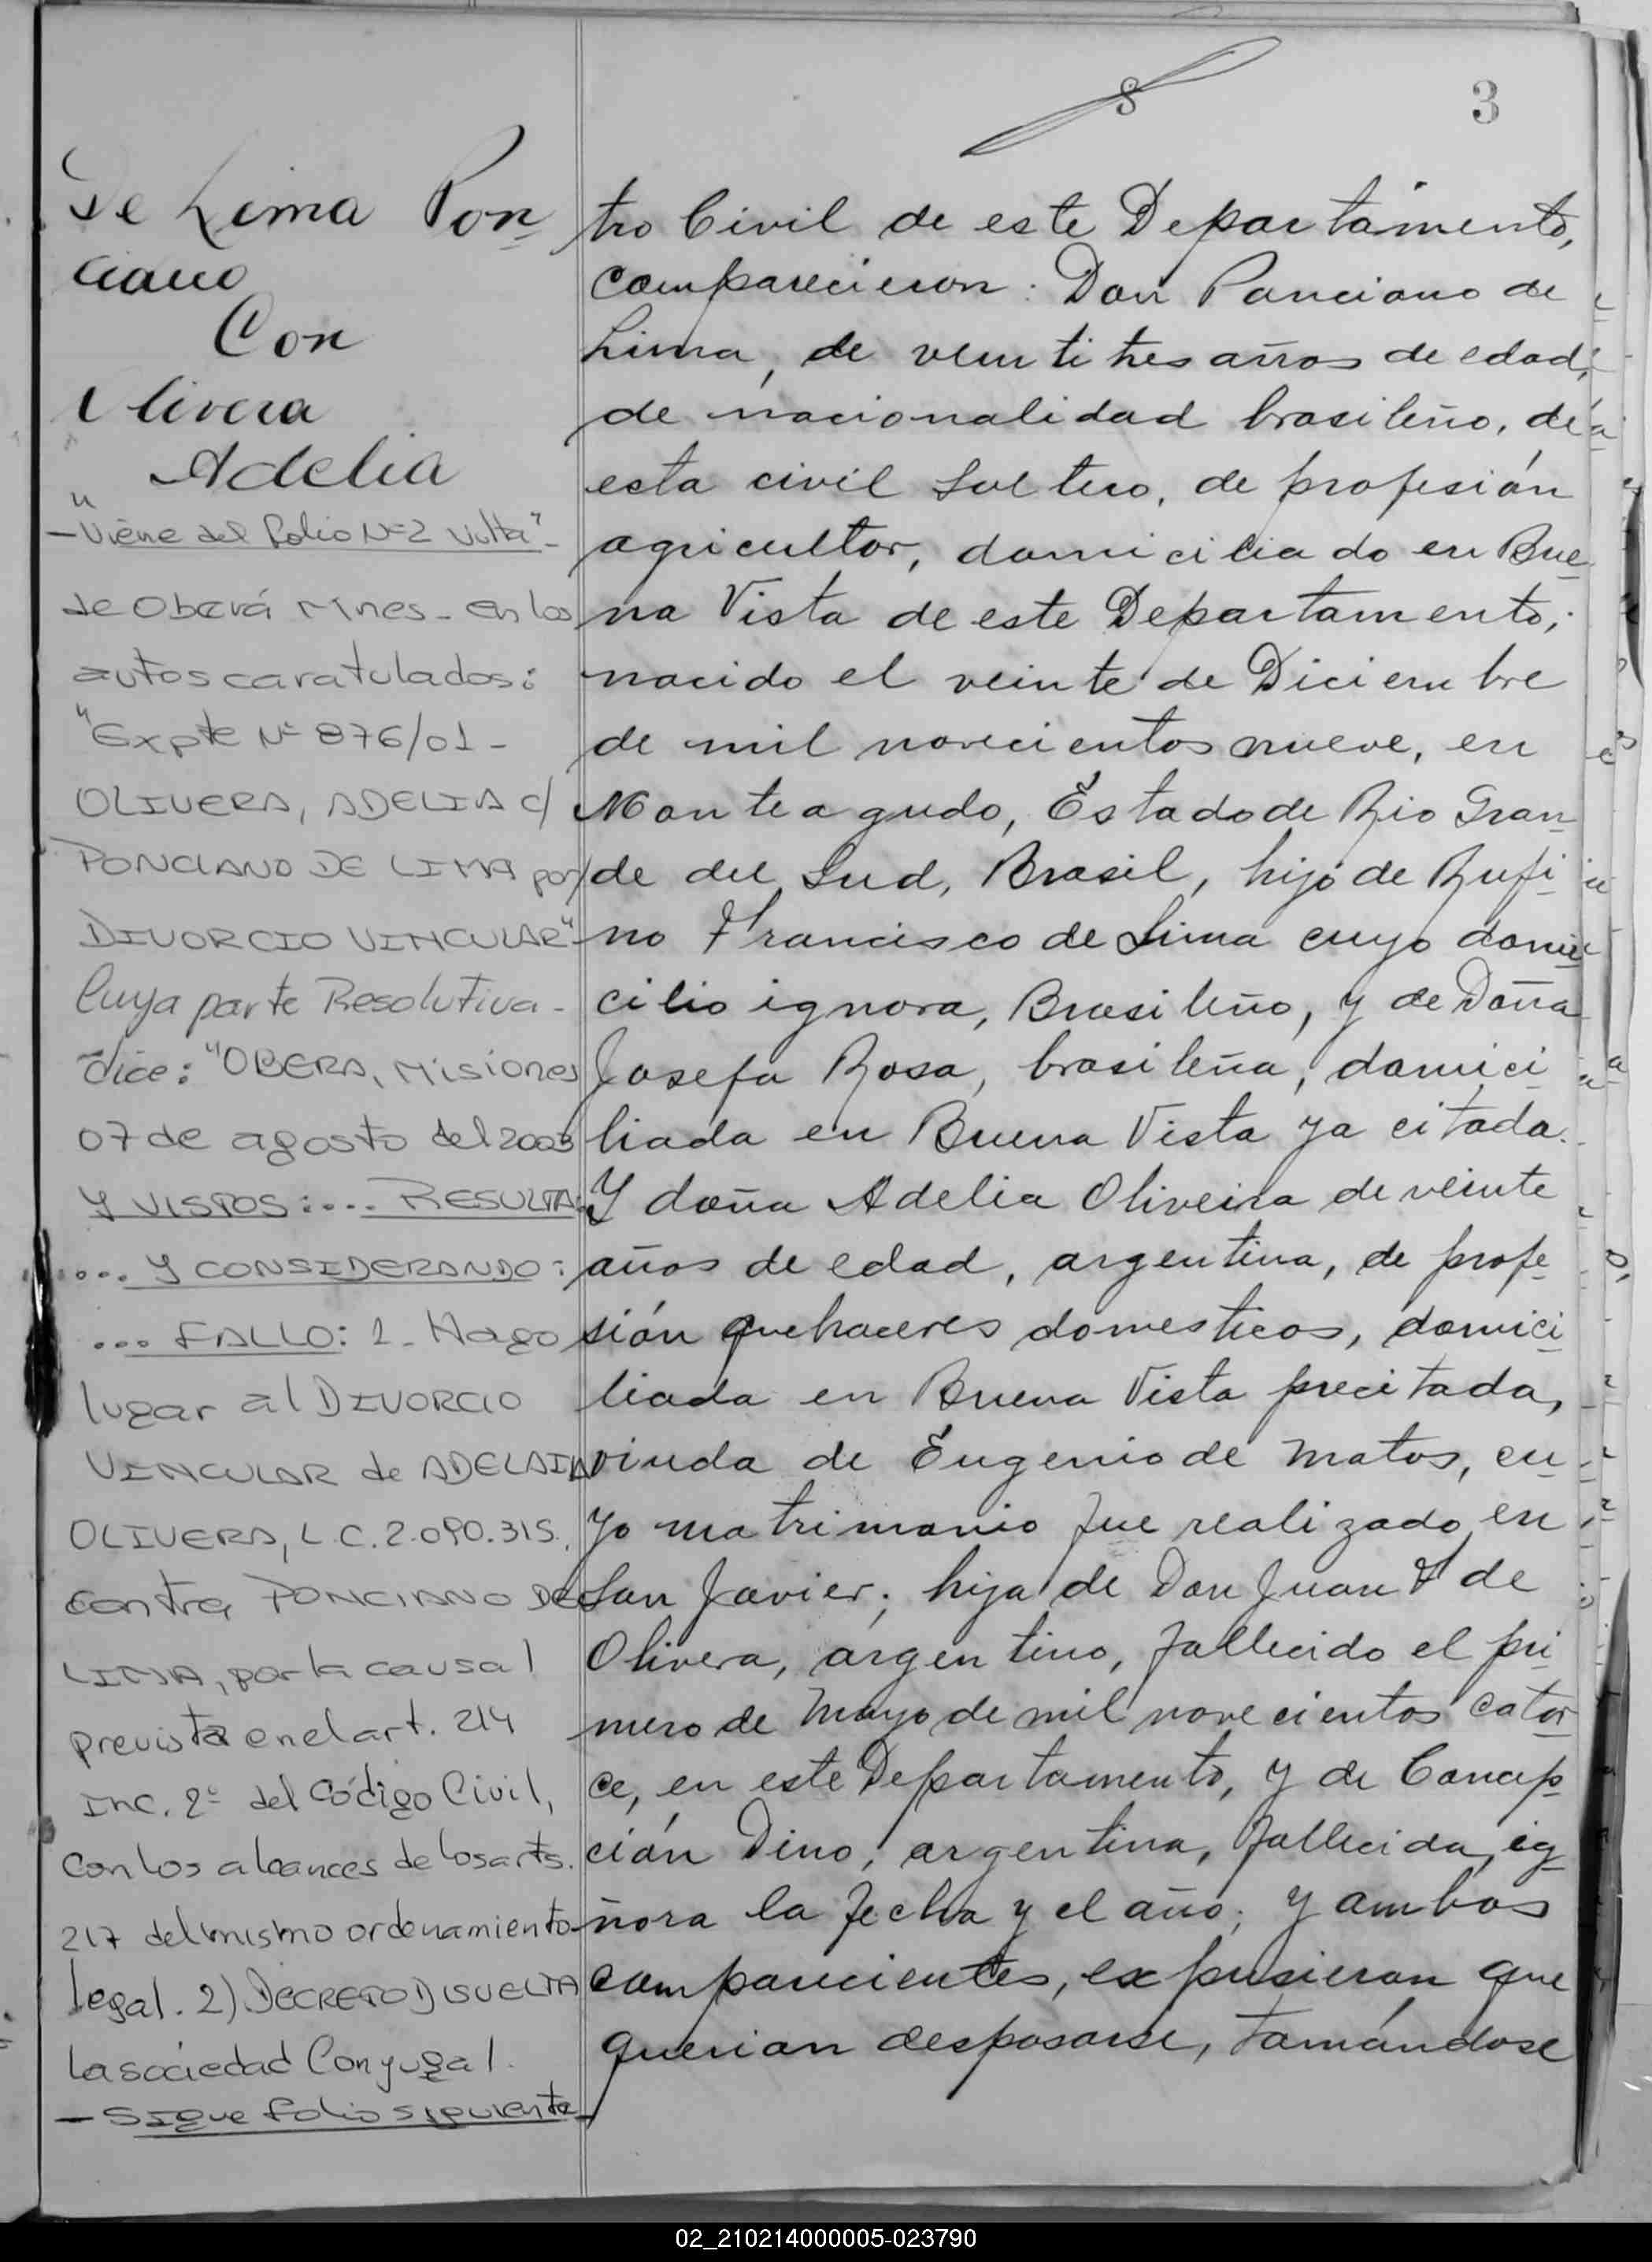 8
3
De Lima Pon
ciano
Con
Olivera
Adelia
"
-Viene del folio Nº2 Vulta"-
de Oberá Mnes- en los
autos caratulados:
"Expte Nº 876/01-
OLIVERA, ADELIA c/
PONCIANO DE LIMA por/
DIVORCIO VINCULAR"
Cuya parte Resolutiva-
dice: "OBERA, Misiones
07 de agosto del 2003
Y VISTOS:... RESULTA:
... Y CONSIDERANDO:
... FALLO: 1- Hago
lugar al DIVORCIO
VINCULAR de ADELAIDA
OLIVERA, L.C. 2.090.315.,
contra PONCIANO DE
LIMA, por la causal
prevista en el art. 214
Inc. 2º del Código Civil,
con los alcances de los arts.
217 del mismo ordenamiento
legal. 2) DECRETO DISUELTA
la sociedad Conyugal.
- Sigue folio siguiente-
tro Civil de este Departamento,
comparecieron: Don Ponciano de
Lima, de veinti tres años de edad,
de nacionalidad brasileño, de
esta civil soltero, de profesión
agricultor, domiciliado en Bue
na Vista de este Departamento;
nacido el veinte de Diciembre
de mil novecientos nueve, en
Monteagudo, Estado de Rio Gran
de del Sud, Brasil, hijo de Rufi
no Francisco de Lima cuyo domi
cilio ignora, Brasileño, y de Doña
Josefa Rosa, brasileña, domici
liada en Buena Vista ya citada.
Y doña Adelia Oliveira de veinte
años de edad, argentina, de profe
sión quehaceres domesticos, domici
liada en Buena Vista precitada,
viuda de Eugenio de Matos, cu
yo matrimonio fue realizado en
San Javier; hija de Don Juan F de
Olivera, argentino, fallecido el pri
mero de Mayo de mil novecientos cator
ce, en este Departamento, y de Concep
ción Dino, argentina, fallecida, ig
ñora la fecha y el año; y ambos
comparecientes, expusieron que
querian desposarse, tomándose
02_210214000005-023790